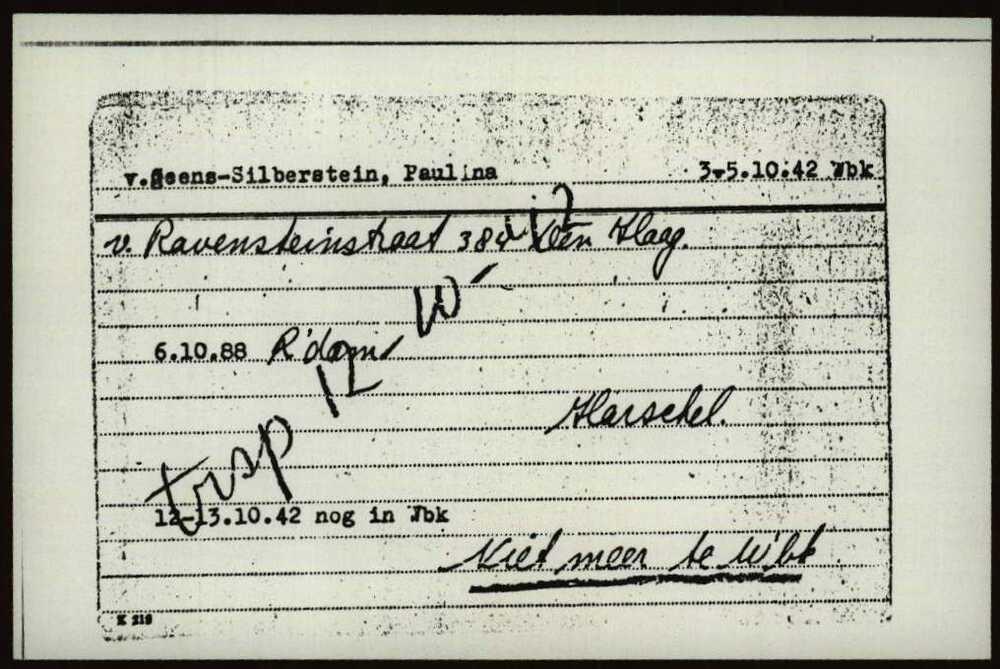 v.Geens-Silberstein, Paulina 3-5.10.42 Wbk
v. Ravensteinstraat Den Haag.
6.10.88 R'dam
Harschel.
trsp 12 W
12-13.10.42 nog in Wbk
Niet meer te W'bk
K 219